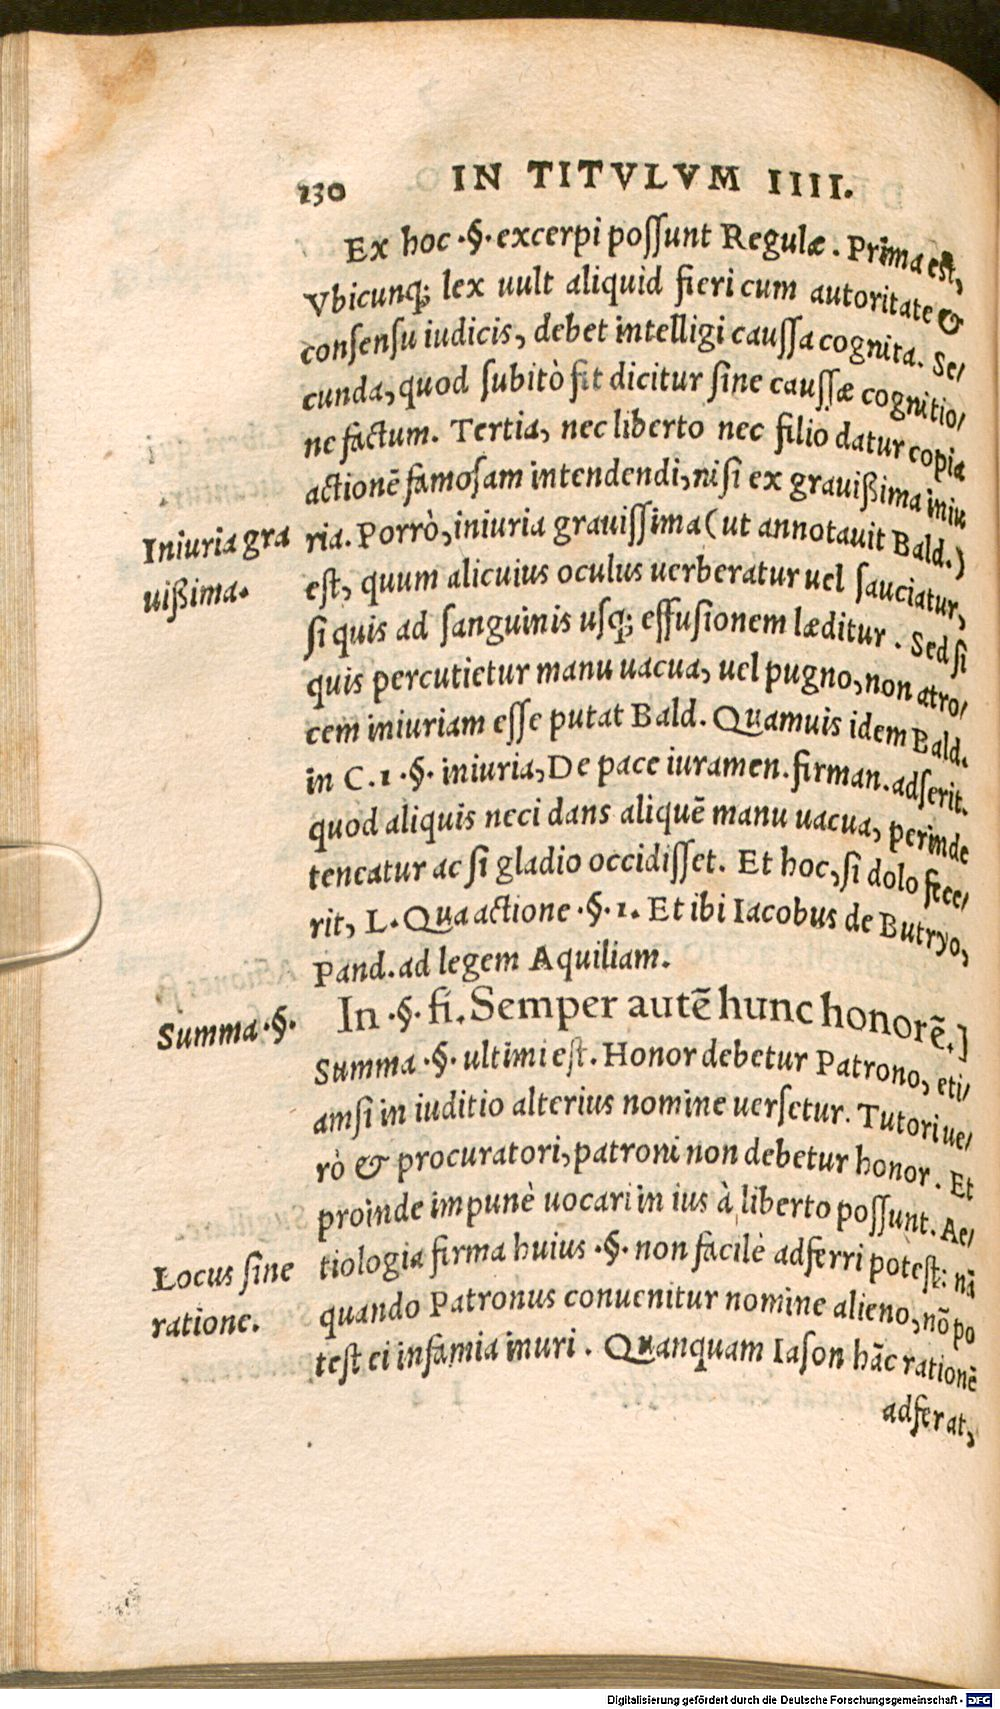 130 IN TITVLVM IIII.
Ex hoc .§. excerpi poſſunt Regulæ. Prima eſt,
Vbicunq; lex uult aliquid fieri cum autoritate &
conſenſu iudicis, debet intelligi cauſſa cognita. Se/
cunda, quod ſubitò fit dicitur ſine cauſſæ cognitio/
ne factum. Tertia, nec liberto nec filio datur copia
actionē famoſam intendendi, niſi ex grauißima iniu
Iniuria gra
uißima.
ria. Porrò, iniuria grauiſſima (ut annotauit Bald.)
eſt, quum alicuius oculus uerberatur uel ſauciatur,
ſi quis ad ſanguinis uſq; effuſionem læditur. Sed ſi
quis percutietur manu uacua, uel pugno, non atro/
cem iniuriam eſſe putat Bald. Quamuis idem Bald.
in C. 1 .§. iniuria, De pace iuramen. firman. adſerit.
quod aliquis neci dans aliquē manu uacua, perinde
teneatur ac ſi gladio occidiſſet. Et hoc, ſi dolo fece/
rit, L. Qua actione .§. 1. Et ibi Iacobus de Butryo,
Pand. ad legem Aquiliam.
Summa .§.
In .§. fi. Semper autē hunc honorē.]
Summa .§. ultimi eſt. Honor debetur Patrono, eti/
amſi in iuditio alterius nomine uerſetur. Tutori ue/
rò & procuratori, patroni non debetur honor. Et
proinde impunè uocari in ius à liberto poſſunt. Ae/
Locus ſine
ratione.
tiologia firma huius .§. non facilè adferri poteſt: nā
quando Patronus conuenitur nomine alieno, nō po
teſt ei infamia inuri. Quanquam Iaſon hāc rationē
adferat,
Digitalisierung gefördert durch die Deutsche Forschungsgemeinschaft - DFG